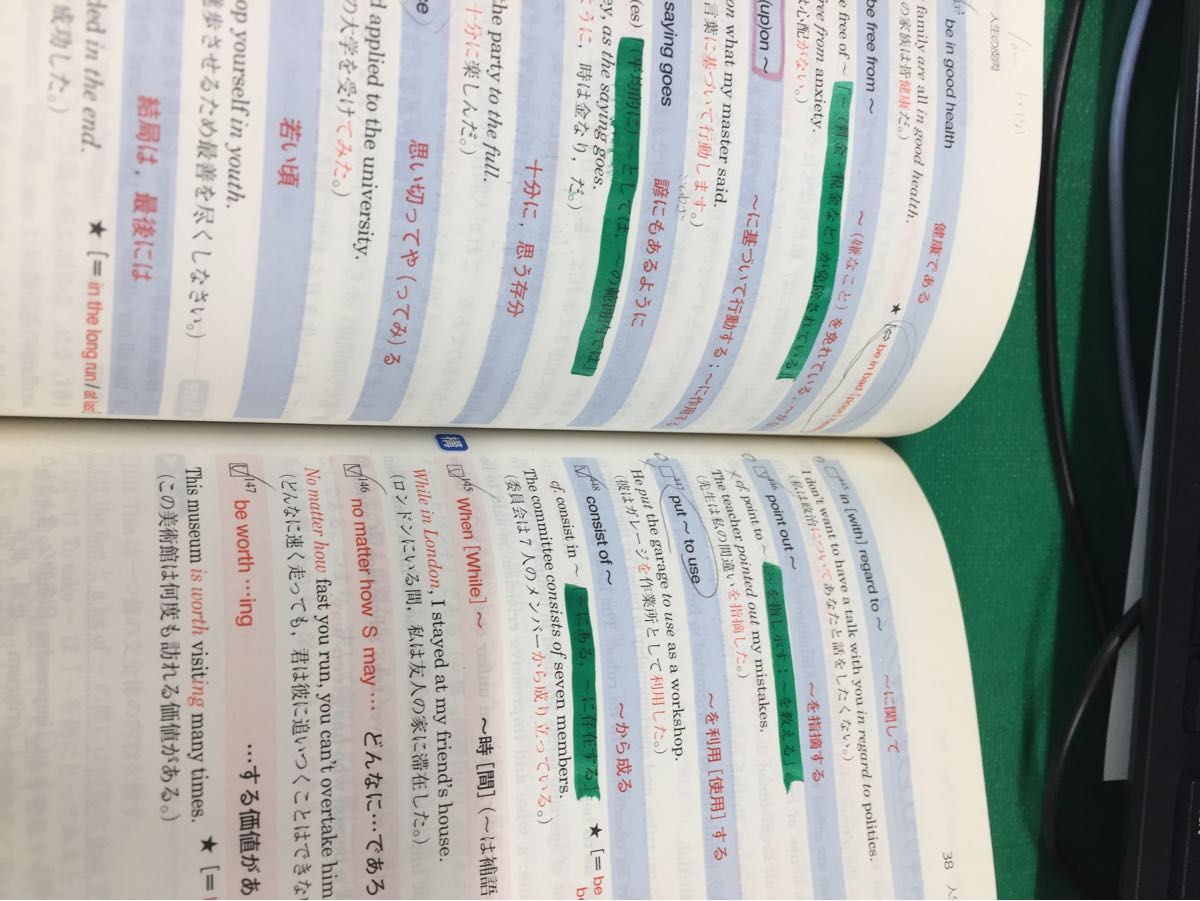 人生の
be in good health
健康である
family are all in good health.
の家族は皆健康だ。)
★ [⇔ be in bad [poor]
be free from ~
~ (嫌なこと) を免れている,
be free of ~ 「~ (料金・税金など) が免除されている」
free from anxiety.
は心配がない。)
(up)on ~
~に基づいて行動する; ~に作用する
on what my master said.
言葉に基づいて行動します。)
saying goes
諺にもあるように
(es)
「(平均的に) としては ~の範囲内では」
ey, as the saying goes.
ように, 時は金なり, だ。)
十分に, 思う存分
the party to the full.
十分に楽しんだ。)
思い切ってや (ってみ) る
d applied to the university.
の大学を受けてみた。)
若い頃
op yourself in youth.
進歩させるため最善を尽くしなさい。)
結局は, 最後には
ded in the end.
★ [= in the long run / at las
成功した。)
38 人
445 in [with] regard to ~
~に関して
I don't want to have a talk with you in regard to politics.
(私は政治についてあなたと話をしたくない。)
446 point out ~
~を指摘する
cf. point to ~ 「~を指し示す; ~を教える」
The teacher pointed out my mistakes.
(先生は私の間違いを指摘した。)
447 put ~ to use
~を利用 [使用] する
He put the garage to use as a workshop.
(彼はガレージを作業所として利用した。)
448 consist of ~
~から成る
cf. consist in ~ 「~にある, ~に存在する」
★ [= be
The committee consists of seven members.
(委員会は7人のメンバーから成り立っている。)
構
145 When [While] ~
~時 [間] (~は補語
While in London, I stayed at my friend's house.
(ロンドンにいる間, 私は友人の家に滞在した。)
146 no matter how S may …
どんなに…であろ
No matter how fast you run, you can't overtake him
(どんなに速く走っても, 君は彼に追いつくことはできな
147 be worth …ing
…する価値があ
This museum is worth visiting many times.
★ [=
(この美術館は何度も訪れる価値がある。)